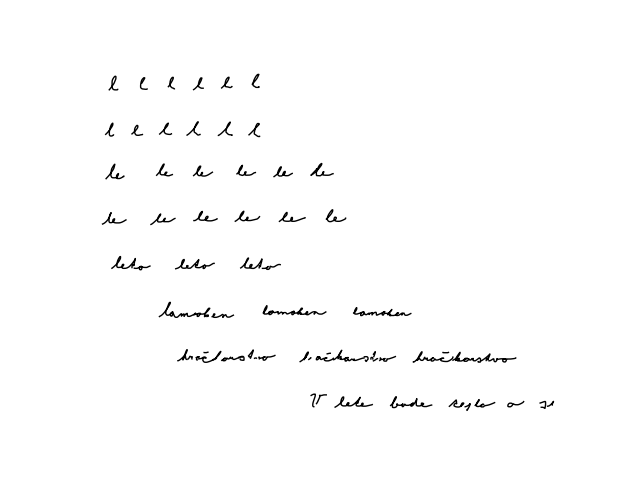 l l l l l l
l e l l l l
le le le le le le
le le le le le le
leto leto leto
lamoken lamoken lamoken
hračkarstvo hračkarstvo hračkarstvo
V lete bude teplo a